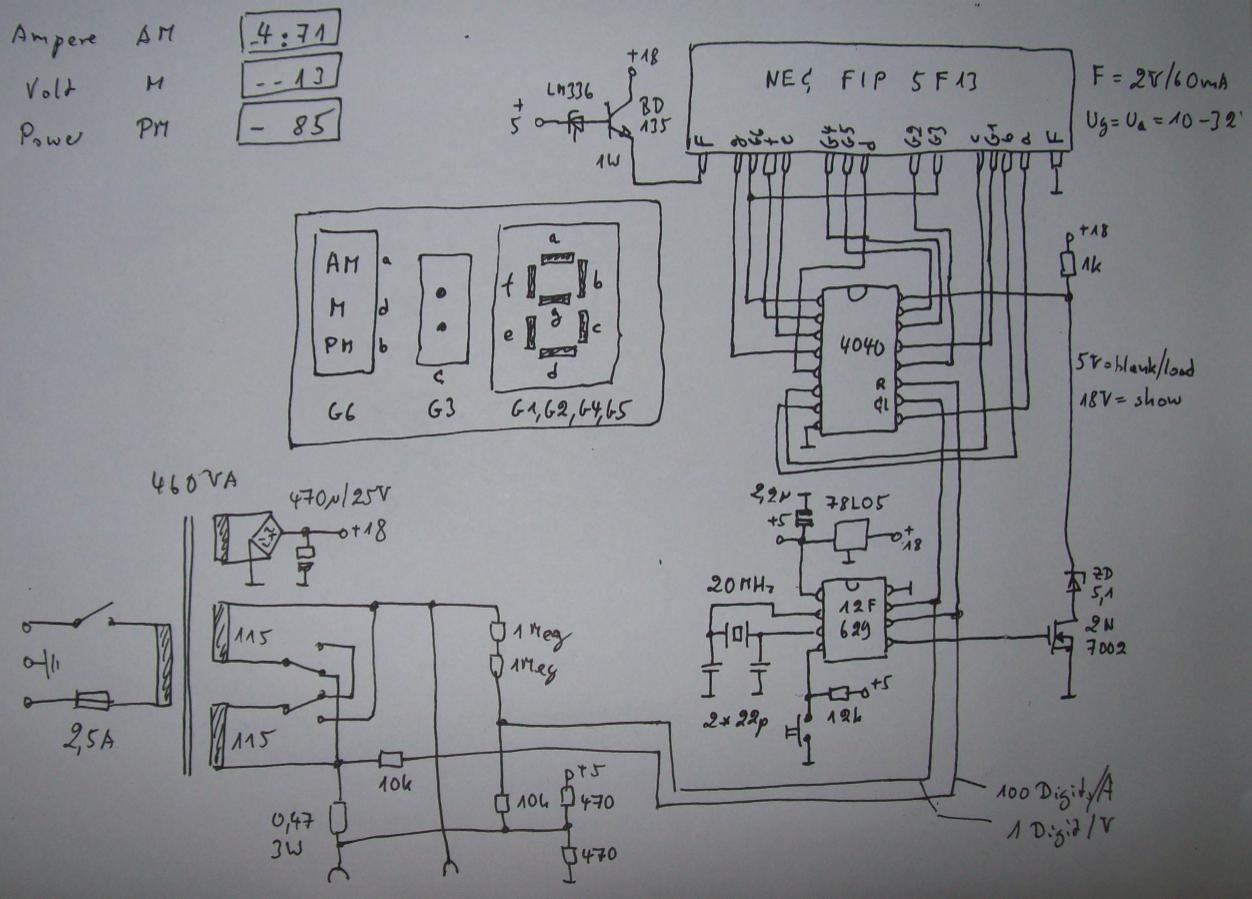 Ampere AM -4:71
Volt M --13
Power PM - 85
+18
LM336
+
5
BD
135
1W
NEC FIP 5F13
F = 2V/60mA
Ug = Ua = 10-32
F g G6 f e G4 G5 d G2 G3 c G1 b a F
AM a
M d
PM b
G6
c
G3
a
f b
g
e c
d
G1, G2, G4, G5
+18
1k
4040
R
CL
5V = blank/load
18V = show
460VA
470µ/25V
+18
2,2µ
78L05
+5
+
18
20MHz
12F
629
ZD
5,1
2N
7002
+5
12k
2*22p
115
115
2,5A
1Meg
1Meg
10k
0,47
3W
10k
+5
470
470
100 Digit/A
1 Digit/V